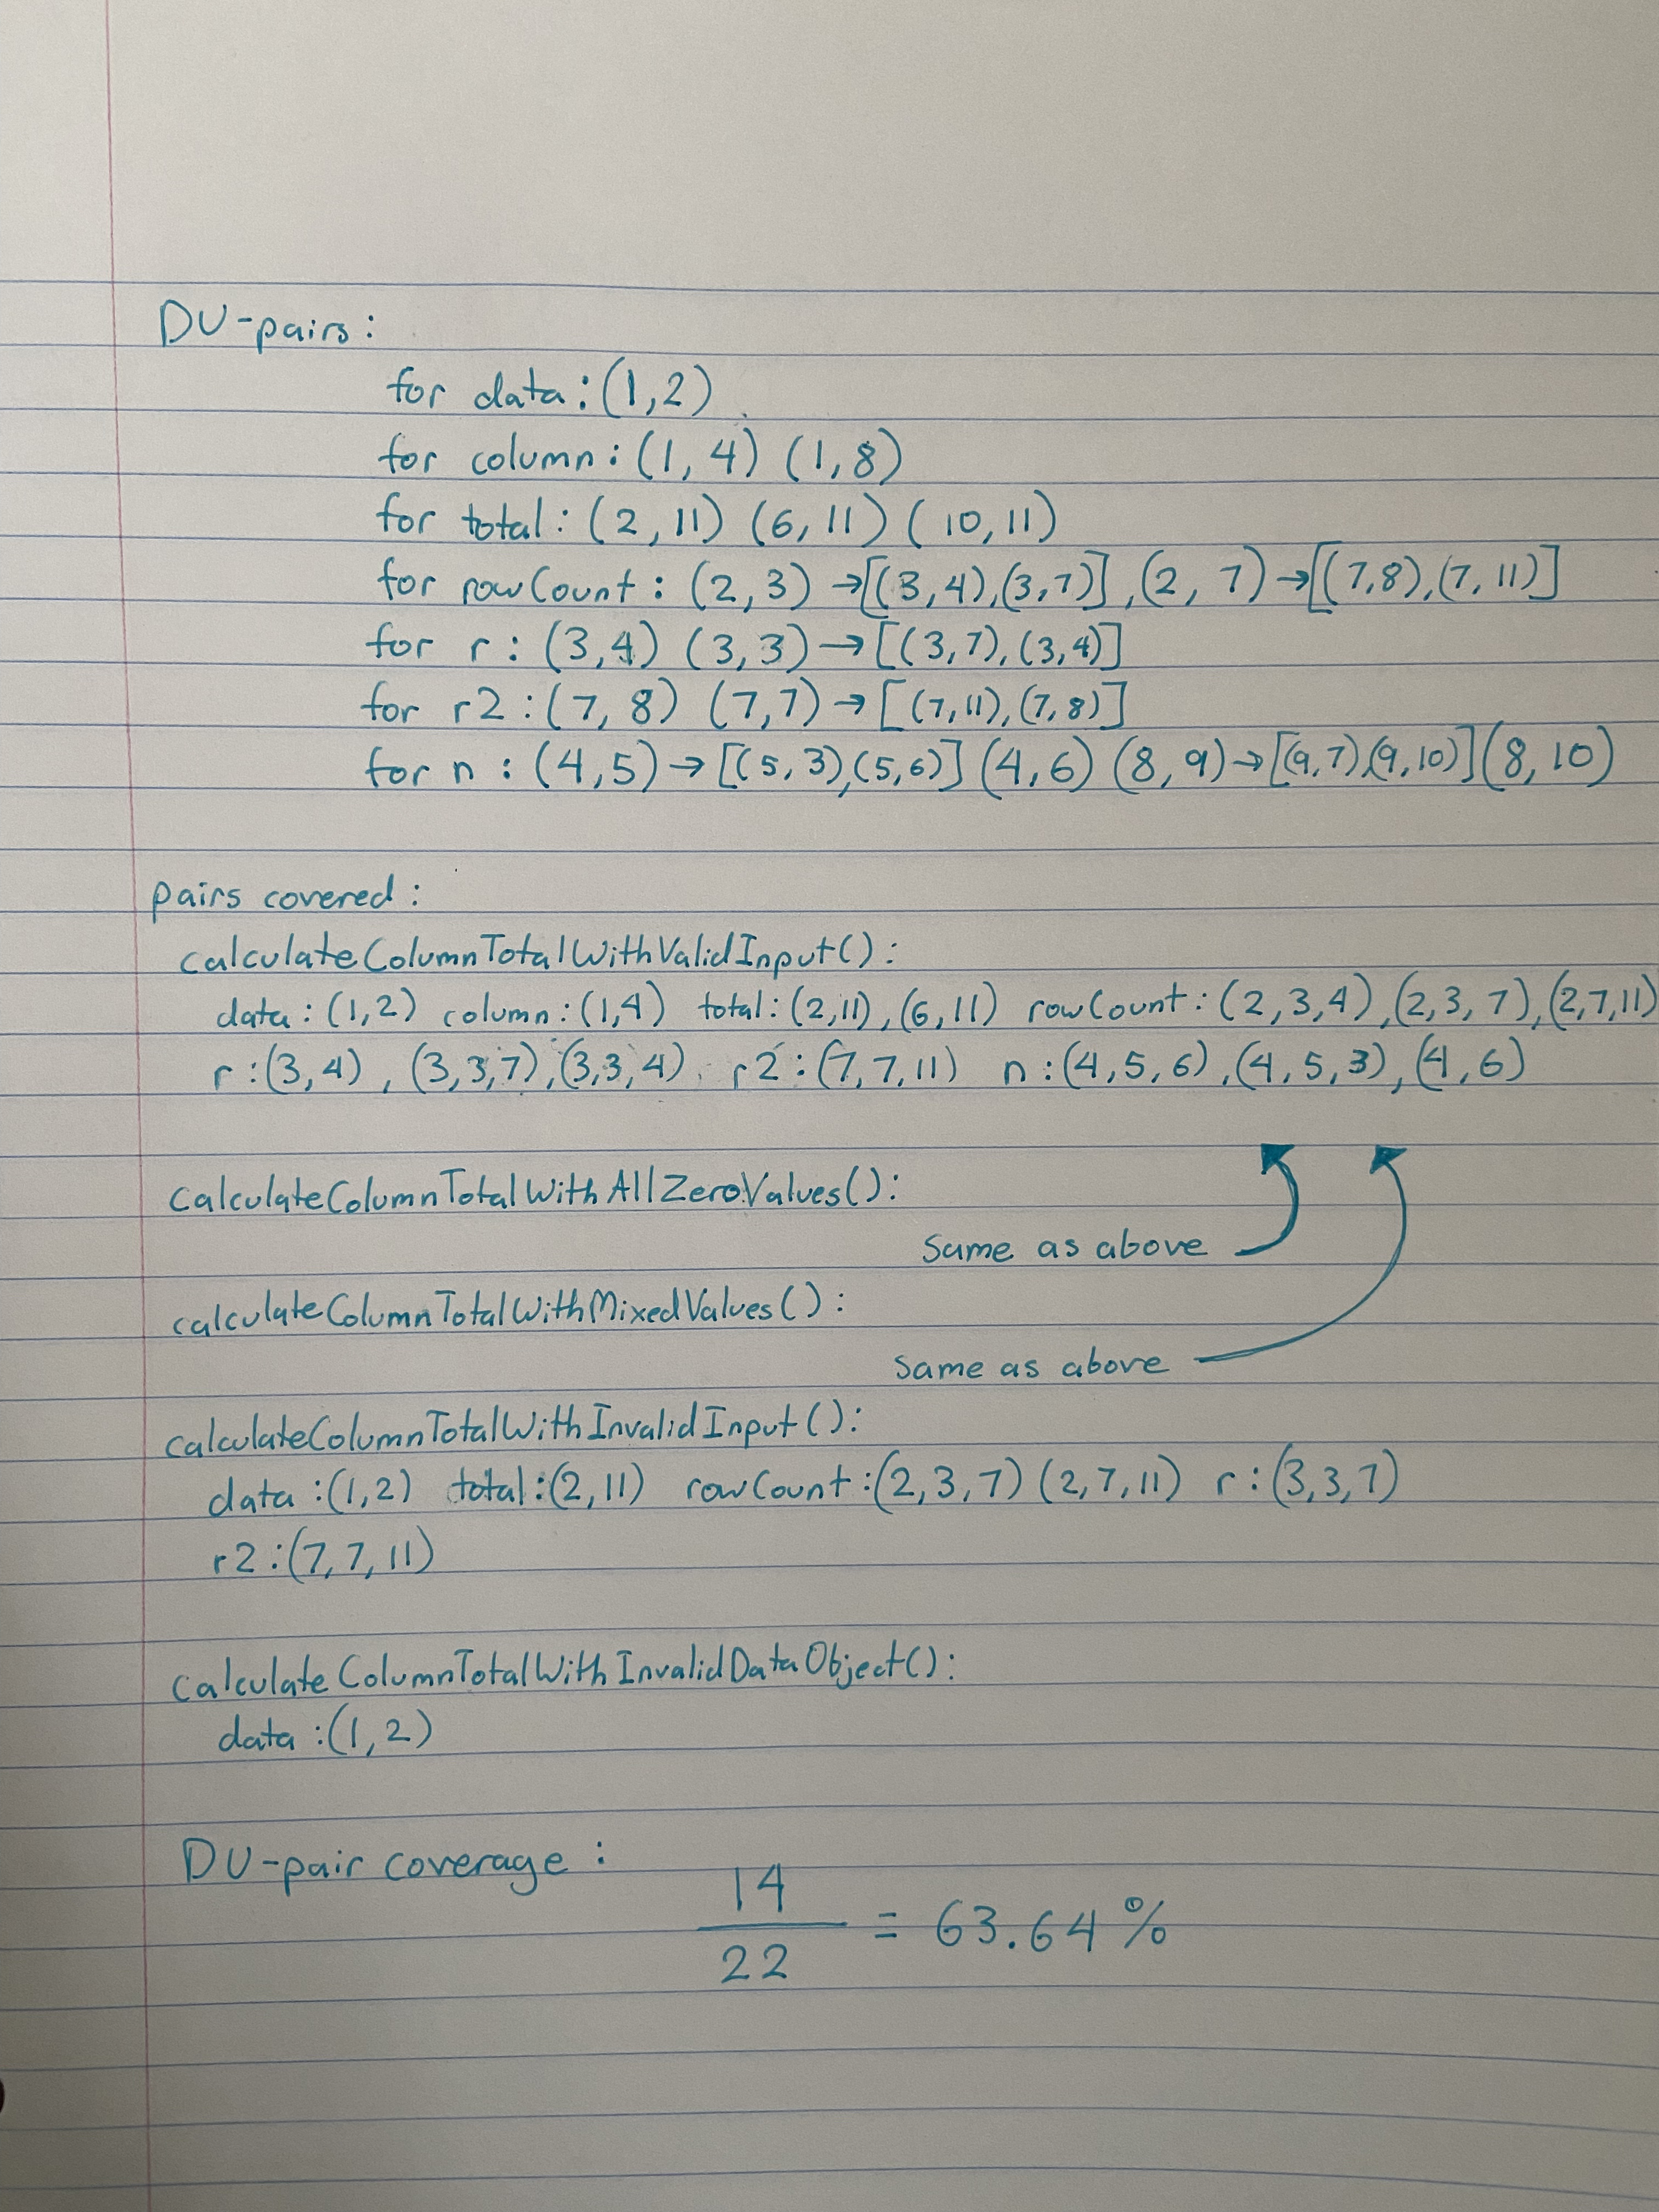 DU-pairs:
for data: (1,2)
for column: (1, 4) (1, 8)
for total: (2, 11) (6, 11) (10, 11)
for rowCount: (2, 3) →[(3,4),(3,7)], (2, 7) →[(7,8),(7, 11)]
for r: (3,4) (3,3)→[(3,7),(3,4)]
for r2: (7, 8) (7,7)→[(7,11),(7,8)]
for n: (4,5)→[(5,3),(5,6)] (4,6) (8,9)→[(9,7),(9,10)] (8, 10)
pairs covered:
calculateColumnTotalWithValidInput():
data: (1,2) column: (1,4) total: (2,11), (6,11) rowCount: (2,3,4), (2,3,7), (2,7,11)
r: (3,4), (3,3,7), (3,3,4) r2: (7,7,11) n: (4,5,6), (4,5,3), (4,6)
calculateColumnTotalWithAllZeroValues():
same as above
calculateColumnTotalWithMixedValues():
same as above
calculateColumnTotalWithInvalidInput():
data: (1,2) total: (2,11) rowCount: (2,3,7) (2,7,11) r: (3,3,7)
r2: (7,7,11)
calculateColumnTotalWithInvalidDataObject():
data: (1,2)
DU-pair coverage:
14
22 = 63.64%